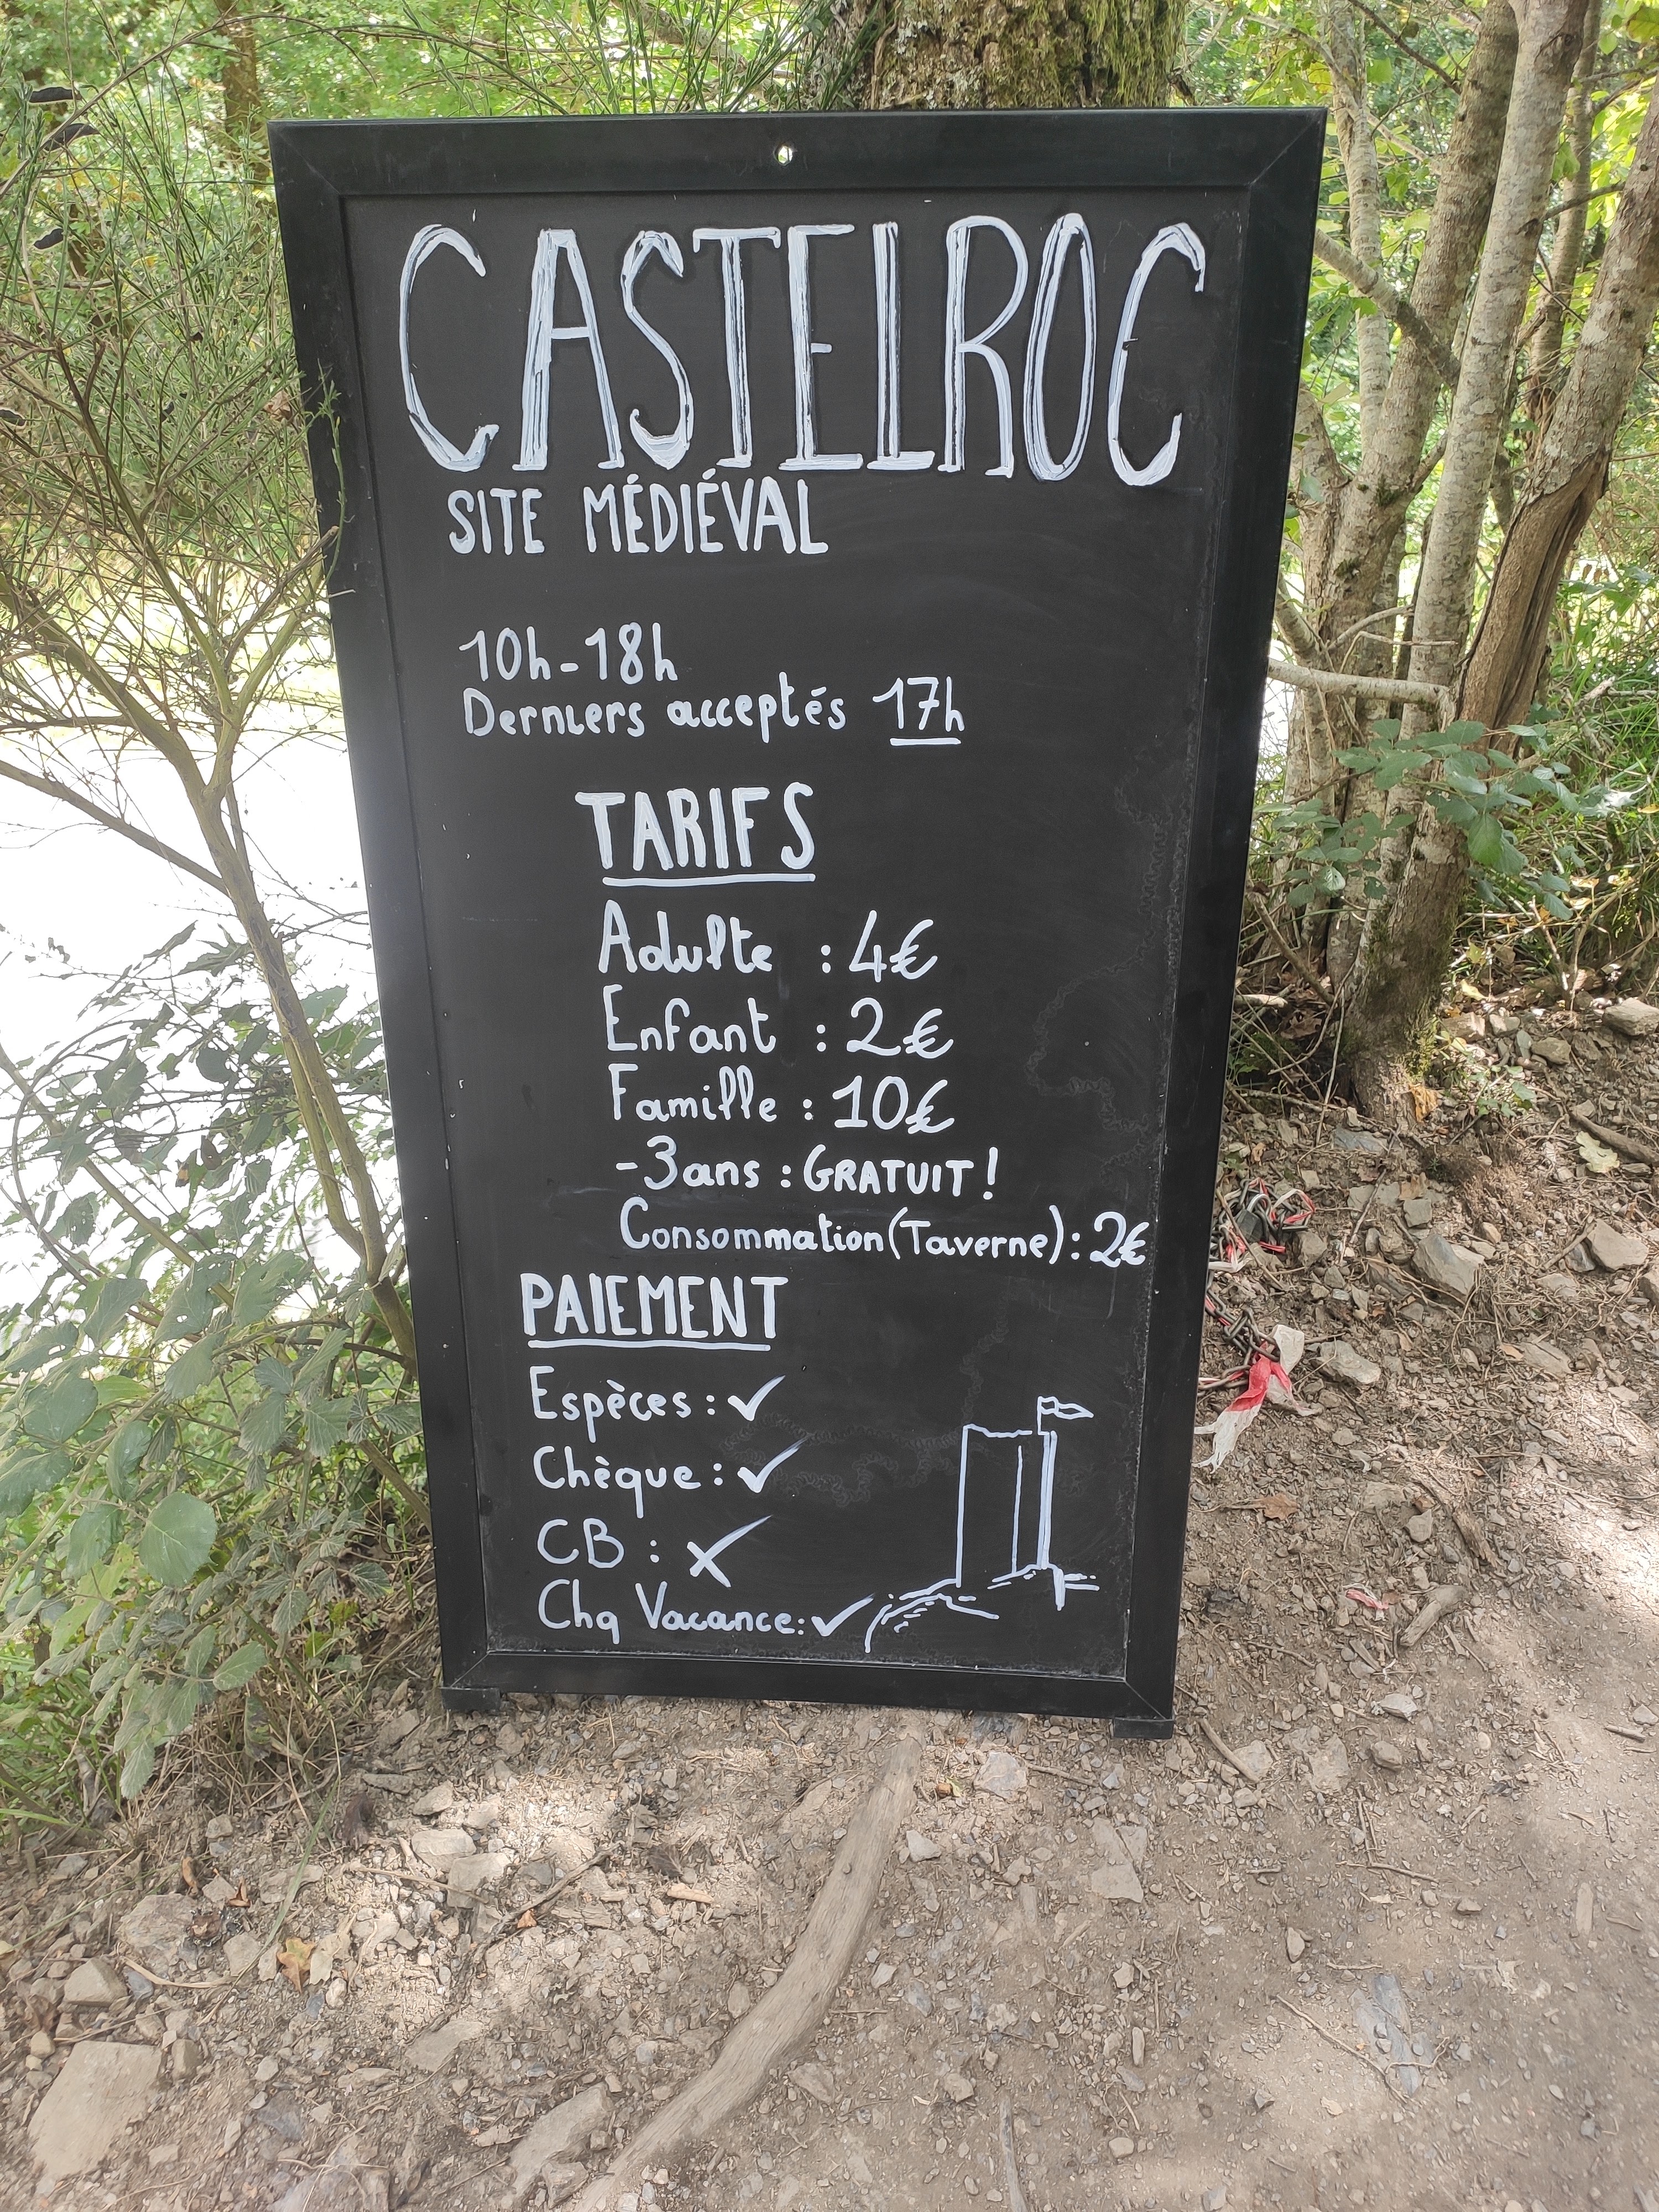 CASTELROC
SITE MÉDIÉVAL
10h-18h
Derniers acceptés 17h
TARIFS
Adulte : 4€
Enfant : 2€
Famille : 10€
-3ans : GRATUIT !
Consommation (Taverne) : 2€
PAIEMENT
Espèces : ✓
Chèque : ✓
CB : ✗
Chq Vacance : ✓